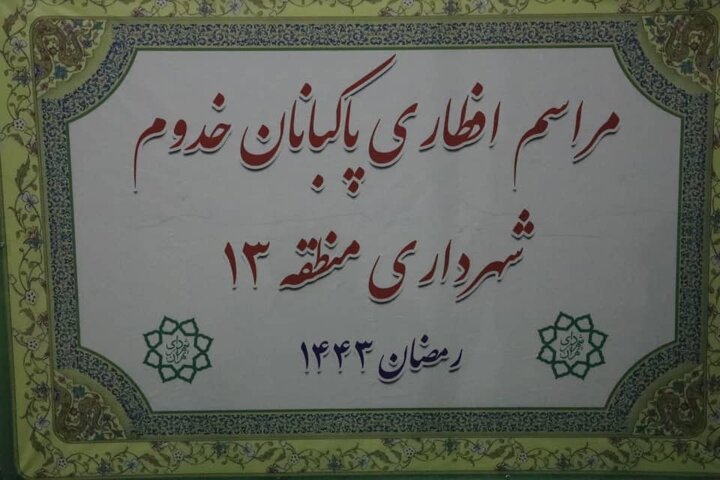 مراسم افطاری پاکبانان خدوم
شهرداری منطقه ۱۳
رمضان ۱۴۴۳
شهرداری تهران
شهرداری تهران